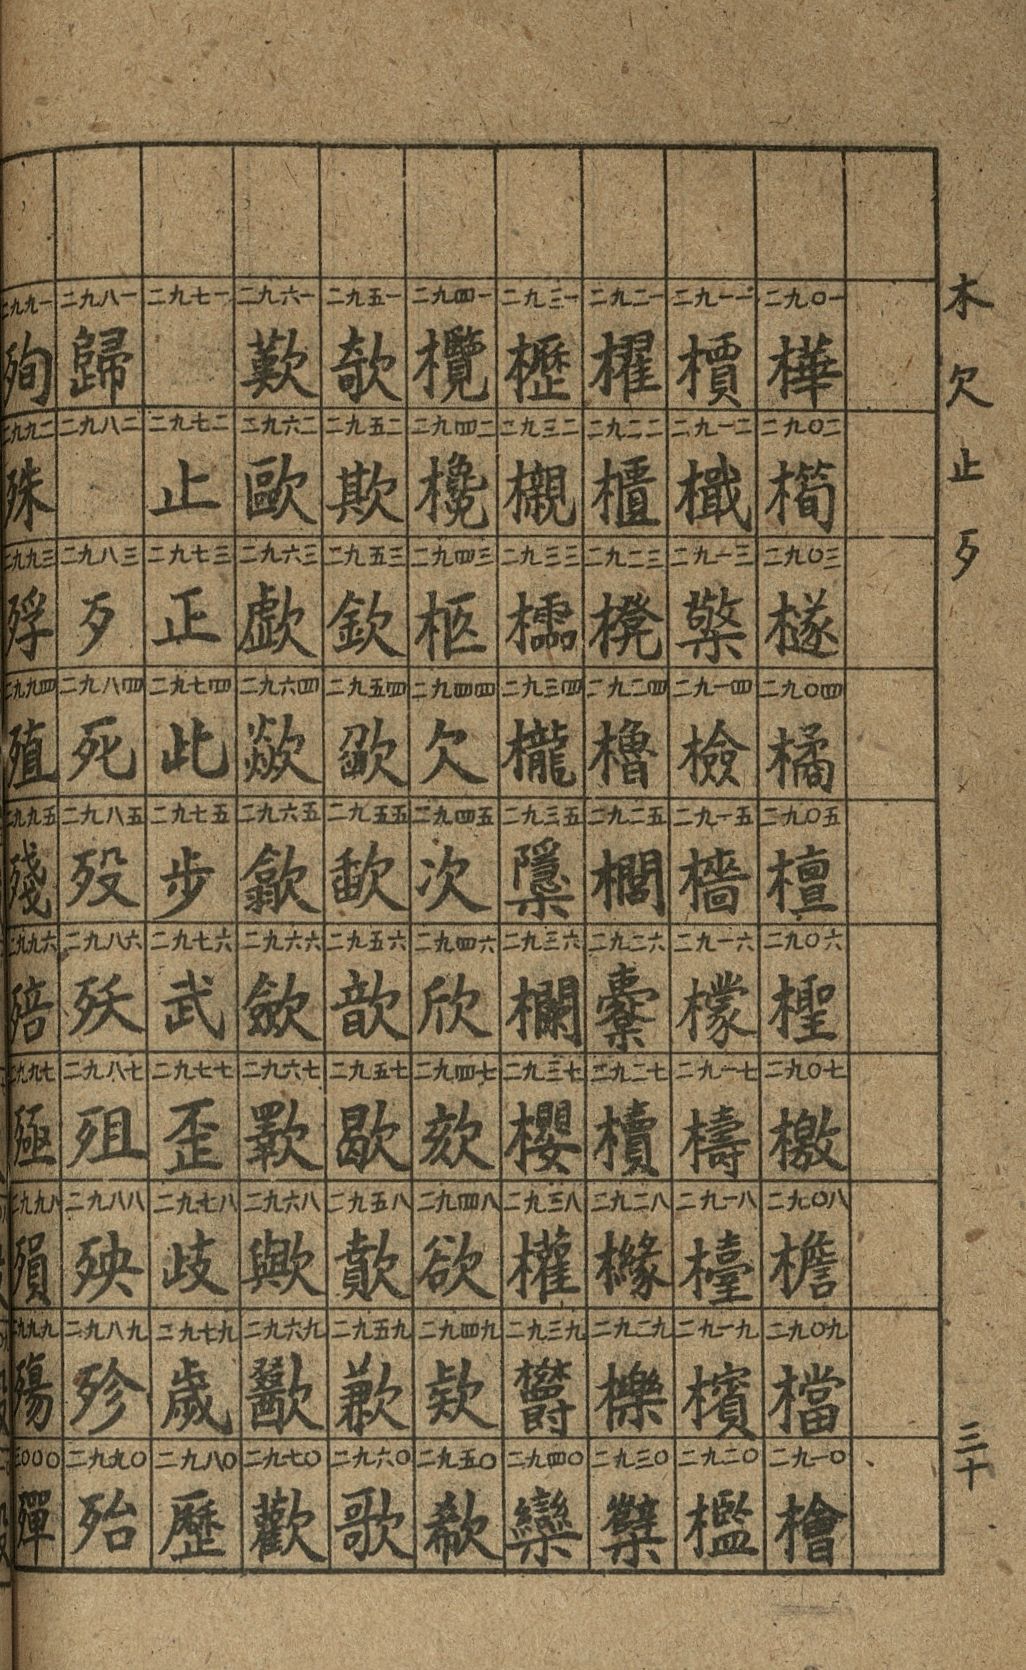 木欠止歹
三十
二九〇一 樺
二九〇二
二九〇三 檖
二九〇四 橘
二九〇五 檀
二九〇六 檉
二九〇七 檄
二九〇八 檐
二九〇九 檔
二九一〇 檜
二九一一 檟
二九一二 檝
二九一三 檠
二九一四 檢
二九一五 檣
二九一六 檬
二九一七 檮
二九一八 檯
二九一九 檳
二九二〇 檻
二九二一 櫂
二九二二 櫃
二九二三 櫈
二九二四 櫓
二九二五 櫊
二九二六 櫜
二九二七 櫝
二九二八 櫞
二九二九 櫟
二九三〇 櫱
二九三一 櫪
二九三二 櫬
二九三三 檽
二九三四 櫳
二九三五 櫽
二九三六 欄
二九三七 櫻
二九三八 權
二九三九 欝
二九四〇 欒
二九四一 欖
二九四二 欃
二九四三 柩
二九四四 欠
二九四五 次
二九四六 欣
二九四七 欬
二九四八 欲
二九四九 欵
二九五〇 欷
二九五一 欹
二九五二 欺
二九五三 欽
二九五四
二九五五 歃
二九五六 歆
二九五七 歇
二九五八 歕
二九五九 歉
二九六〇 歌
二九六一 歎
二九六二 歐
二九六三 歔
二九六四 歘
二九六五 歙
二九六六 歛
二九六七
二九六八 歟
二九六九 歠
二九七〇 歡
二九七一
二九七二 止
二九七三 正
二九七四 此
二九七五 步
二九七六 武
二九七七 歪
二九七八 歧
二九七九 歲
二九八〇 歷
二九八一 歸
二九八二
二九八三 歹
二九八四 死
二九八五 歿
二九八六 殀
二九八七 殂
二九八八 殃
二九八九 殄
二九九〇 殆
二九九一 殉
二九九二 殊
二九九三 殍
二九九四 殖
二九九五 殘
二九九六 殕
二九九七 殛
二九九八 殞
二九九九 殤
三〇〇〇 殫